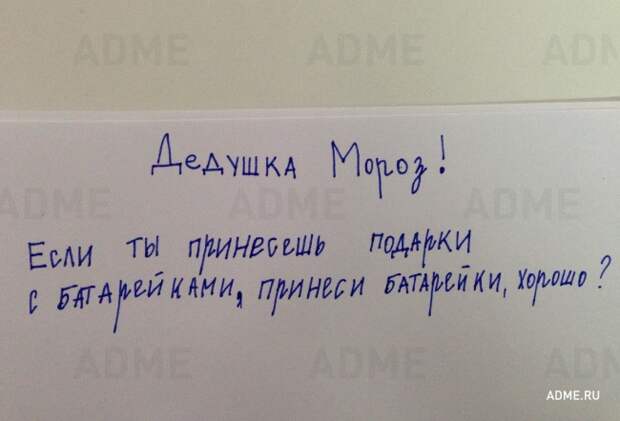 ADME ADME ADME
Дедушка Мороз!
ADME ADME ADME
Если ты принесешь подарки
с батарейками, принеси батарейки, хорошо?
ADME ADME ADME
ADME.RU